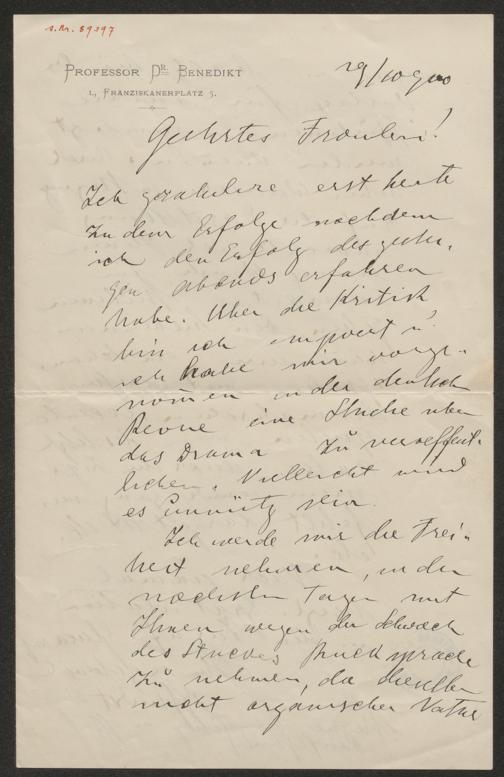 I.N. 89397
PROFESSOR DR. BENEDIKT
I., FRANZISKANERPLATZ 5.
29/10 900
Geehrtes Fräulein!
Ich gratuliere erst heute
zu dem Erfolge nachdem
ich den Erfolg des gestri-
gen abends erfahren
habe. Über die Kritik
bin ich empört u
ich habe mir vorge-
nomen in der deutsch
Revue eine Studie über
das Drama zu veröffent-
lichen. Vielleicht wird
es Ennütz sein.
Ich werde mir die Frei-
heit nehmen, in den
nächsten Tagen mit
Ihnen wegen der Schwäch
des Stückes Rücksprache
zu nehmen, da dieselbe
nicht organischer Natur